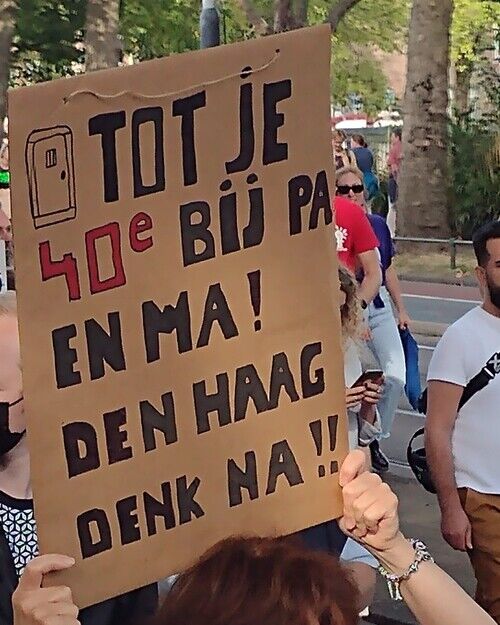 TOT JE
40e BIJ PA
EN MA!
DEN HAAG
DENK NA!!